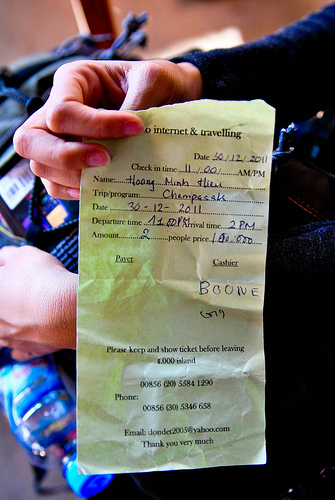 o internet & travelling
Date 30/12/2011
Check in time 11/00/ AM/PM
Name: Hoang Minh Hien
Trip/program: Champasak
Date 30-12-2011
Departure time 11.00PM Arrival time 2 PM
Amount 2 people price 180.000
Payer Cashier
BOONE
Please keep and show ticket before leaving
4.000 island
00856 (20) 5584 1290
Phone:
00856 (30) 5346 658
Email: dondet2005@yahoo.com
Thank you very much